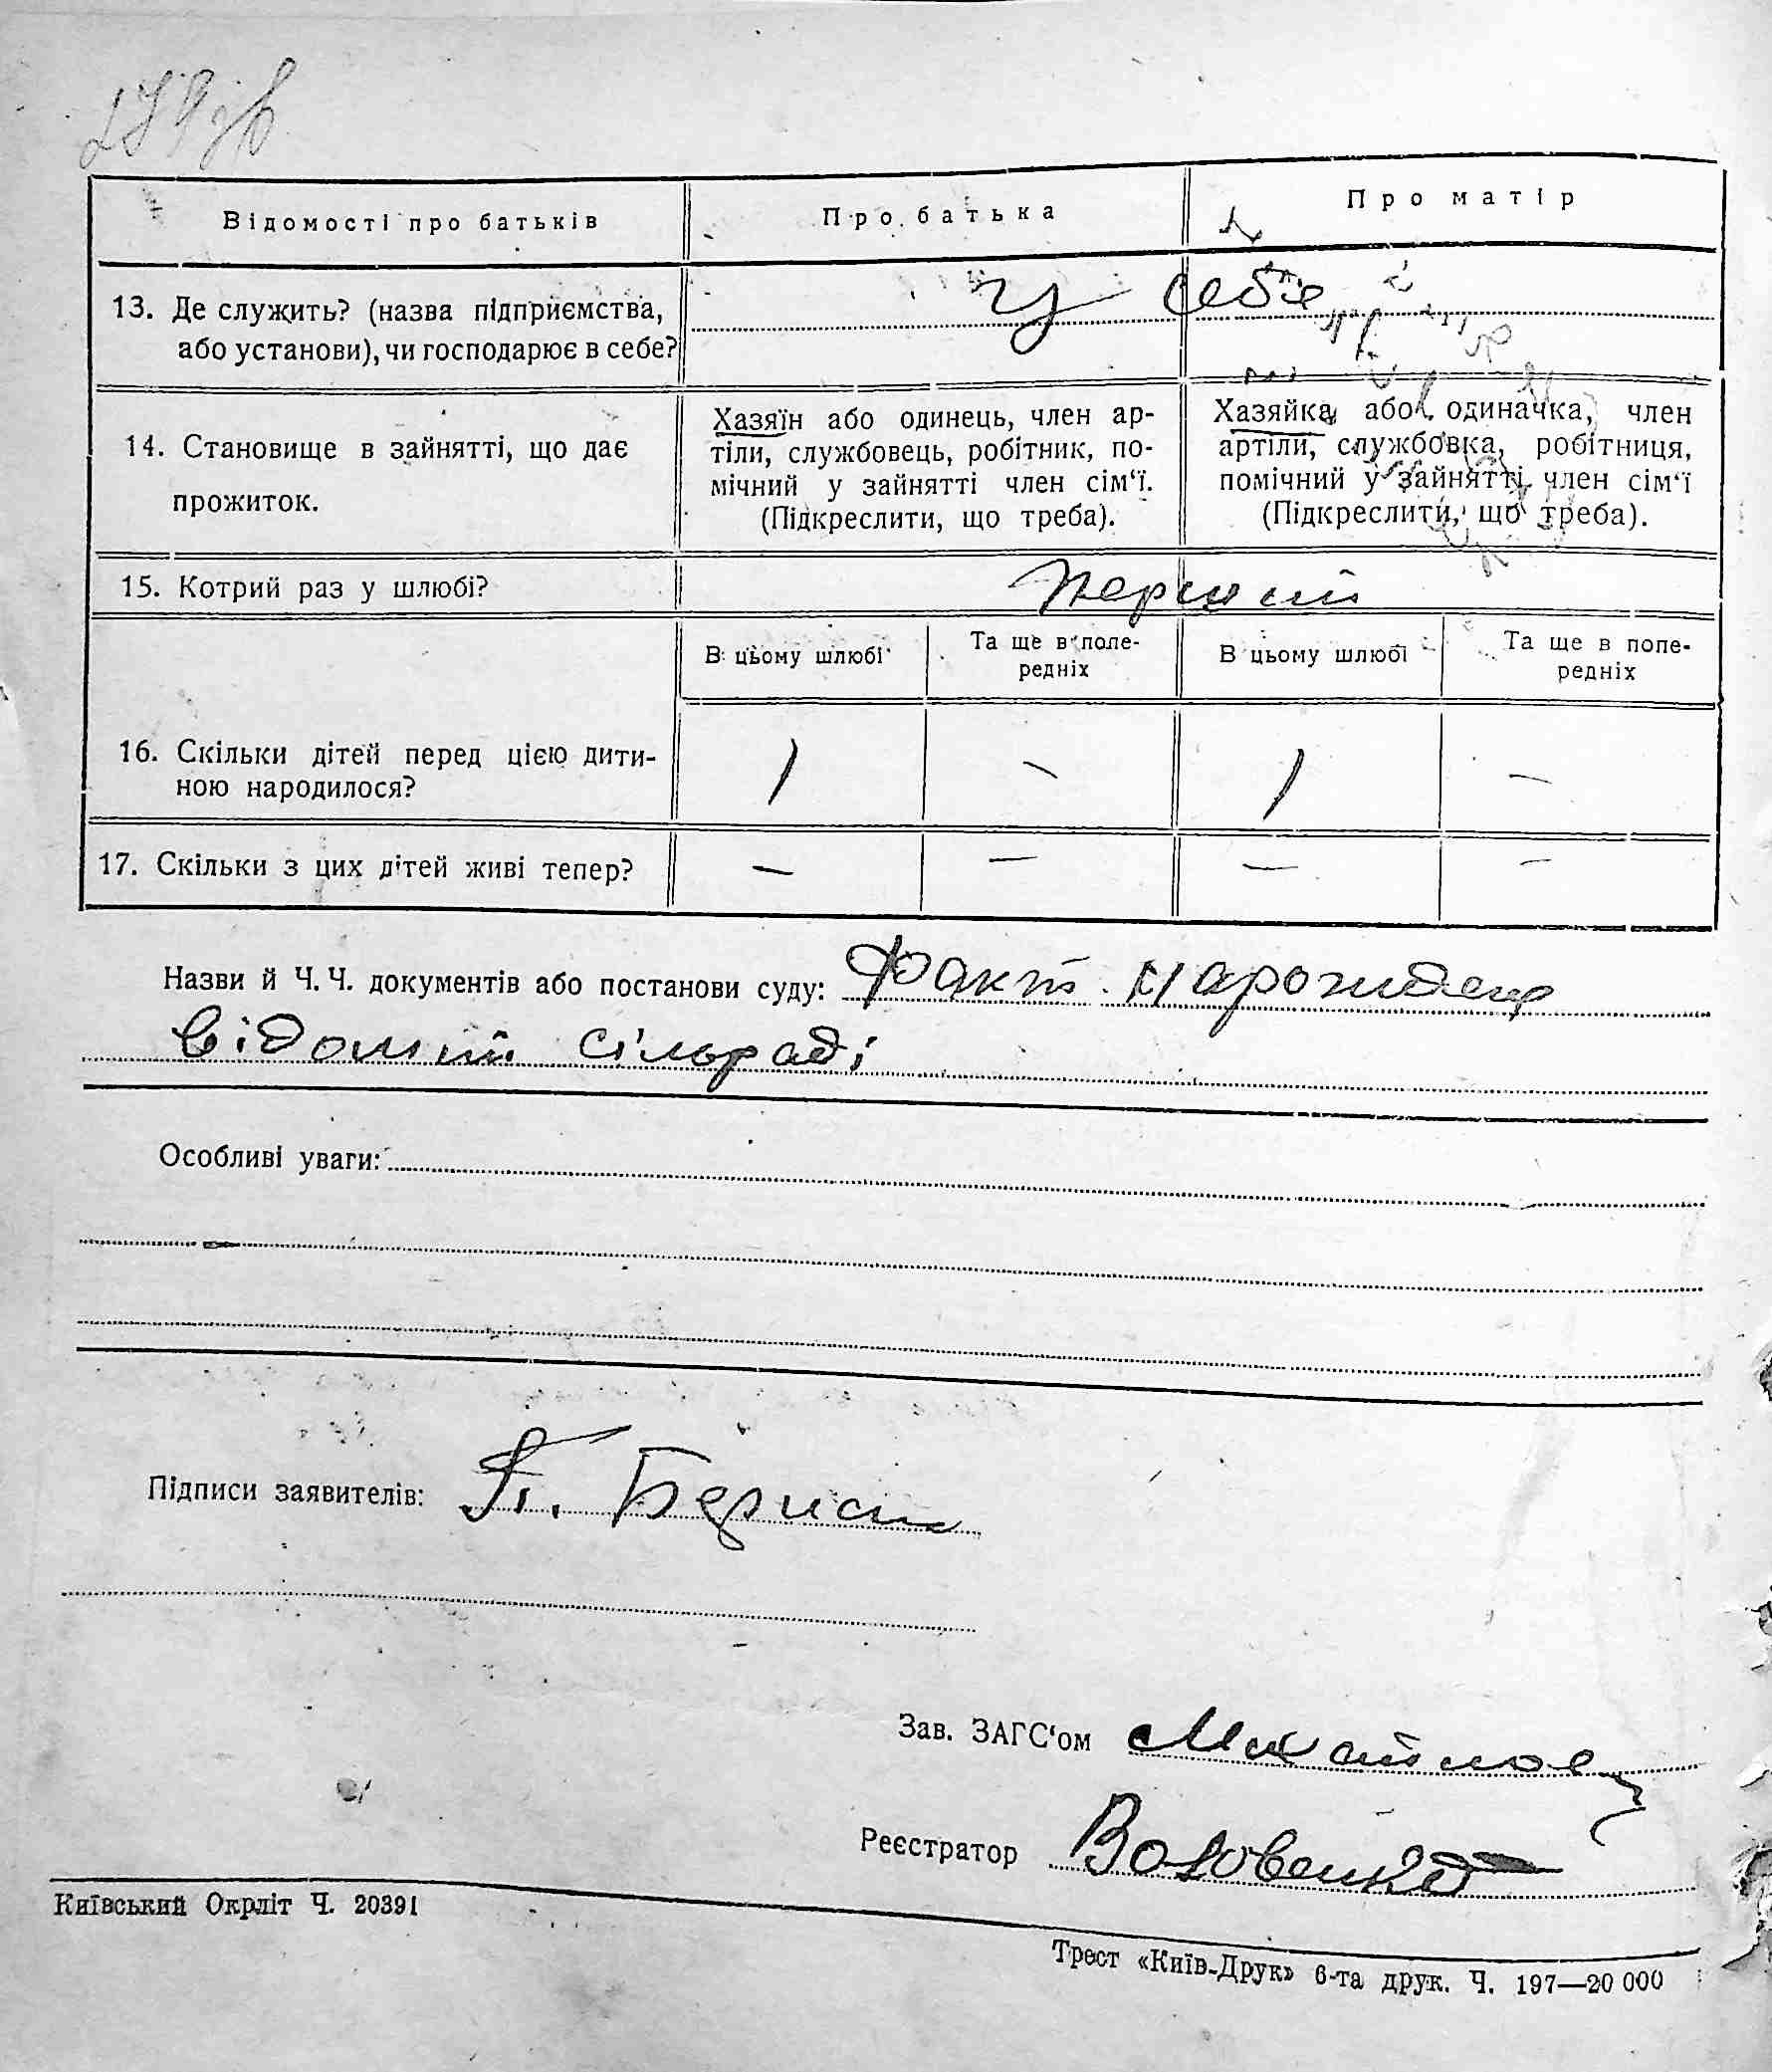 Відомості про батьків
Про батька
Про матір
13. Де служить? (назва підприємства,
або установи), чи господарює в себе?
у себе
14. Становище в зайнятті, що дає
прожиток.
Хазяїн або одинець, член ар-
тіли, службовець, робітник, по-
мічний у зайнятті член сім‘ї.
(Підкреслити, що треба).
Хазяйка, або одиначка, член
артіли, службовка, робітниця,
помічний у зайнятті член сім‘ї
(Підкреслити, що треба).
15. Котрий раз у шлюбі?
перший
В цьому шлюбі
Та ще в попе-
редніх
В цьому шлюбі
Та ще в попе-
редніх
16. Скільки дітей перед цією дити-
ною народилося?
1 — 1 —
17. Скільки з цих дітей живі тепер?
— — — —
Назви й Ч. Ч. документів або постанови суду: Факт народження
відомий сільраді
Особливі уваги:
Підписи заявителів:
Зав. ЗАГС‘ом
Реєстратор
Київський Окрліт Ч. 20391
Трест «Київ-Друк» 6-та друк. Ч. 197—20 000